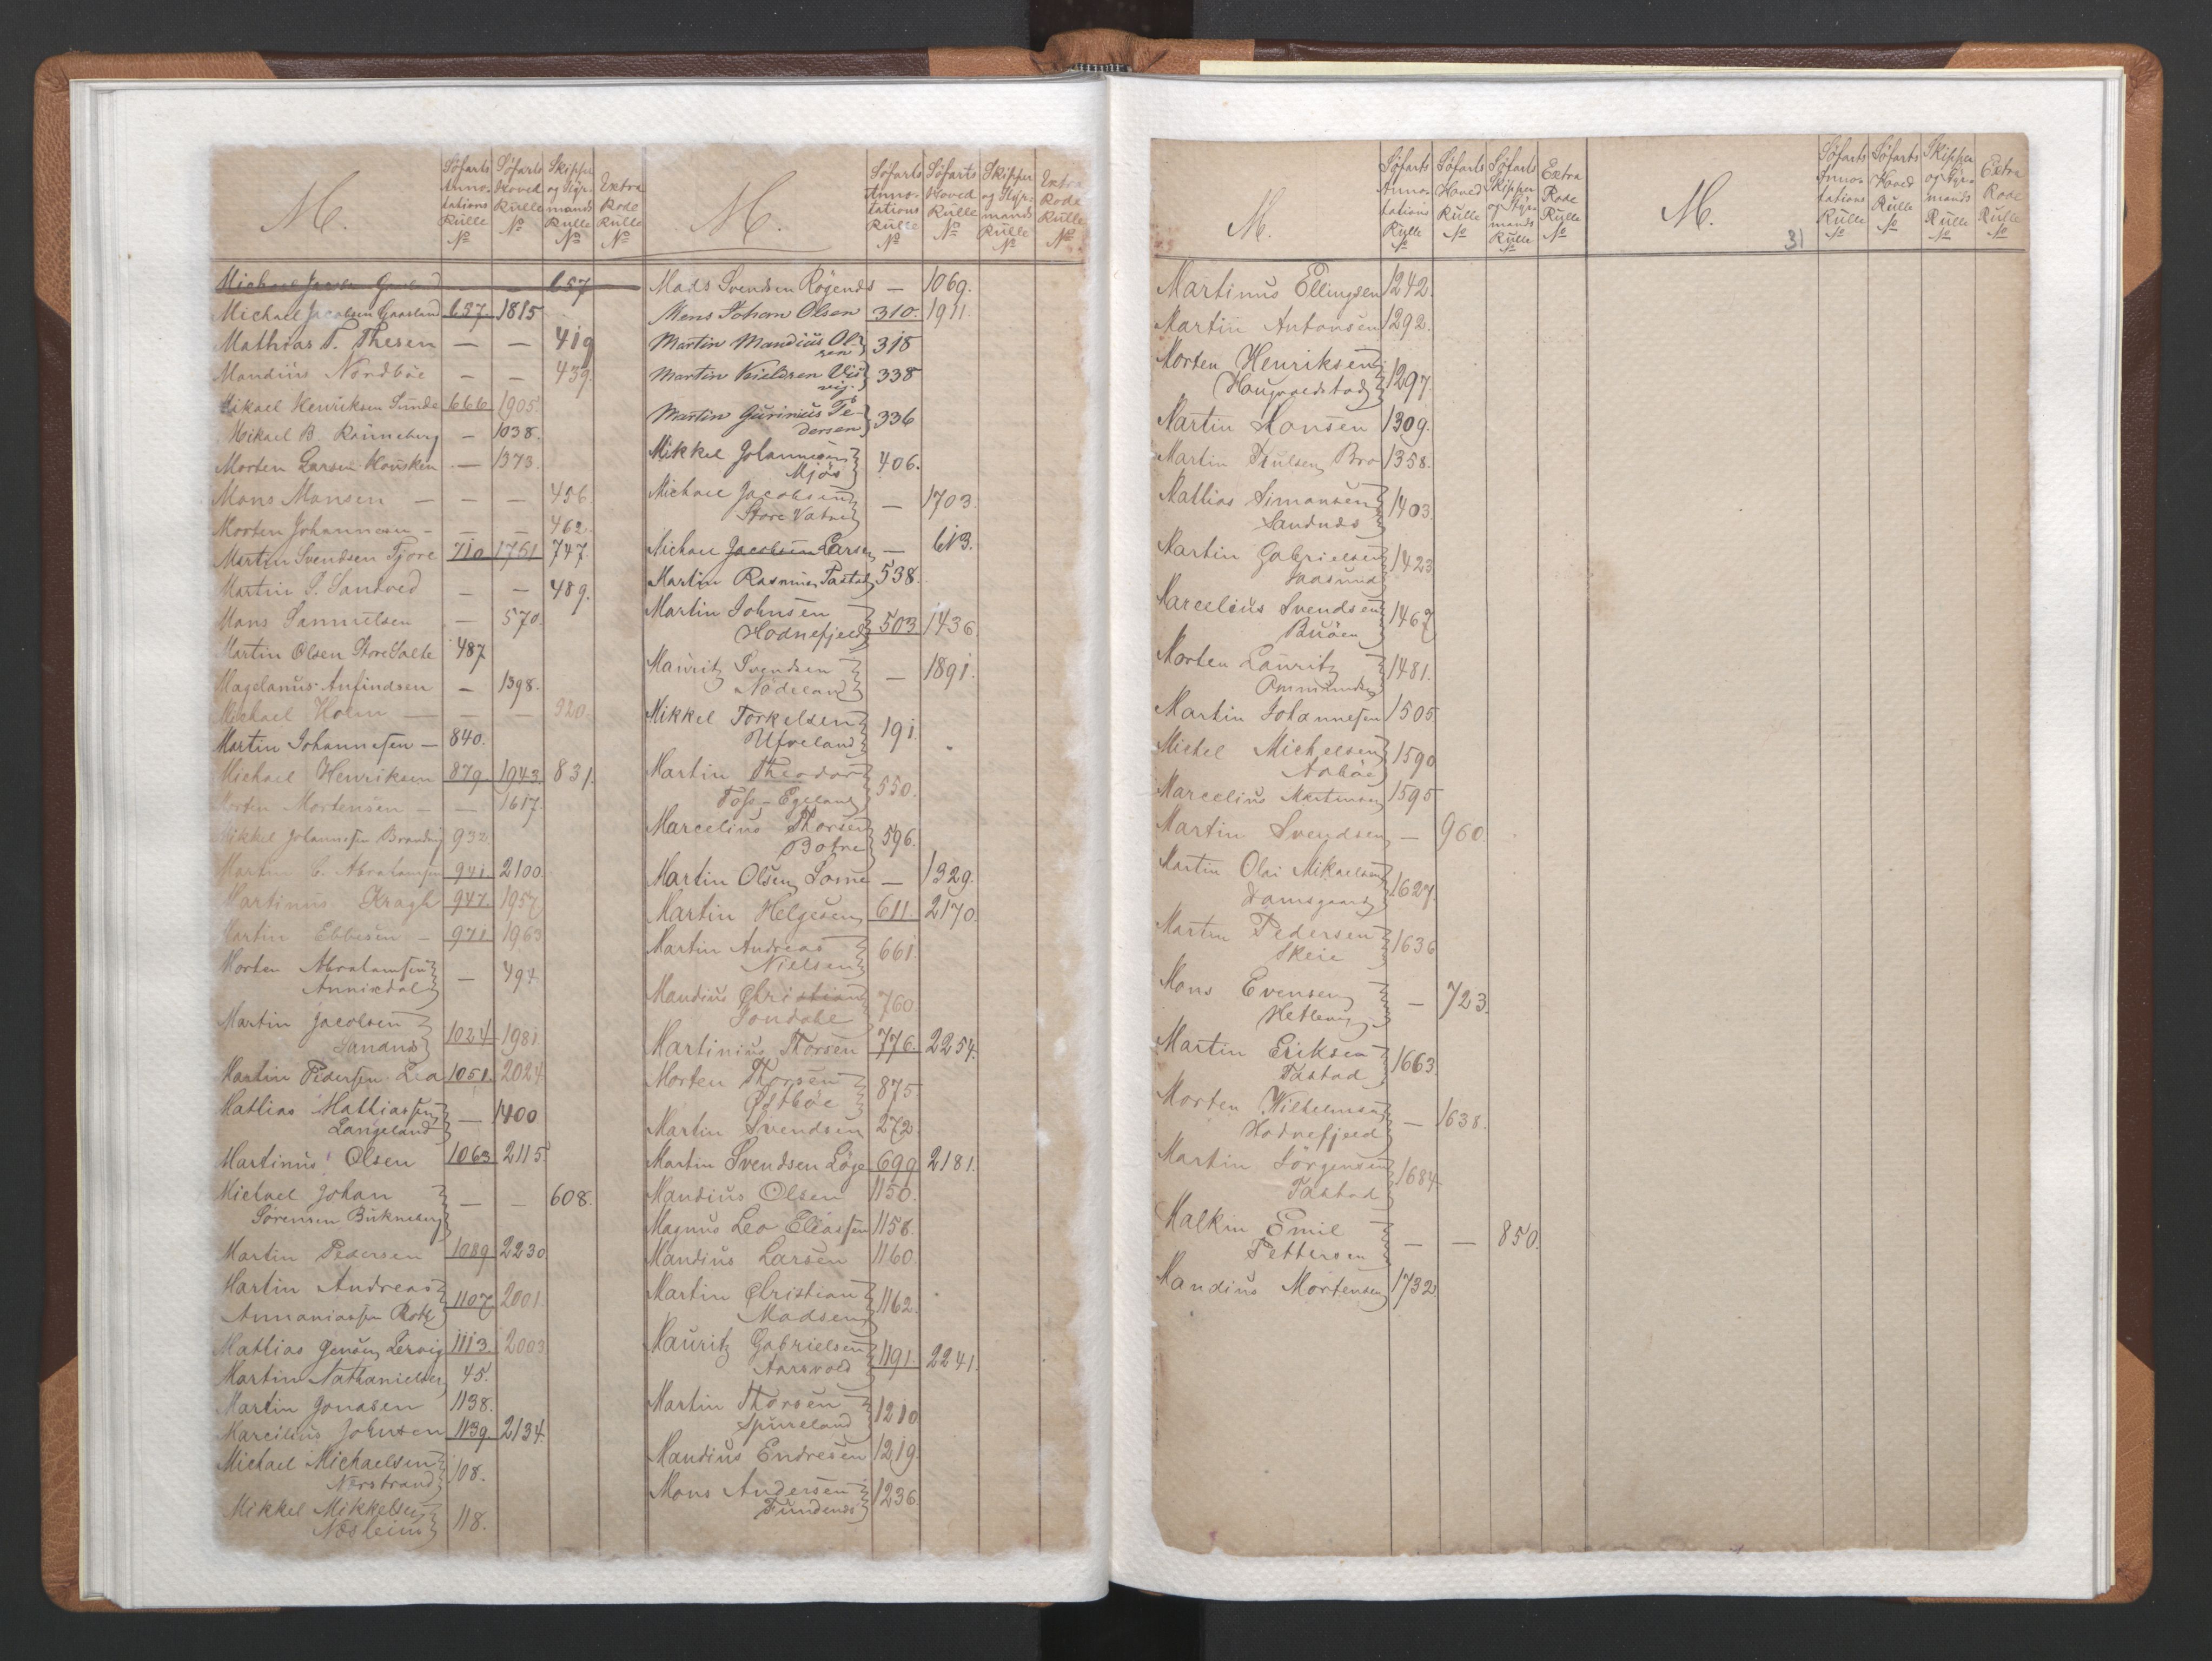 M.
Søfarts Annotations Rulle No
Søfarts Hoved Rulle No
Skipper og Styrmands Rulle No
Extra Rode Rulle No
657
Michael Jacobsen Gaasland 657 1815
Mathias T. Thesen — — 419
Mandius Nordbøe — — 439.
Mikael Henriksen Sunde 666 1905.
Mikael B. Rønneberg — 1038.
Morten Larsen Housken — 1373.
Mons Monsen — — — 456.
Morten Johannesen — — — 462.
Martin Svendsen Tjore 710 1761 747.
Martin S. Sandved — — 489.
Mons Samuelsen — 570.
Martin Olsen Store Salte 487
Magelanus Anfindsen — 1398.
Michael Holm — — — 920.
Martin Johannesen — 840.
Michael Henriksen 879. 1943. 831.
Morten Mortensen — — 1617.
Mikkel Johannesen 932
Martin C. Abrahamsen 941 2100.
Martinus Kragh 947. 1957
Martin Ebbesen — 971. 1963
Morten Abrahamsen — 494.
Martin Jacobsen
Sandnes 1024 1981
Martin Pedersen Lea 1051. 2024
Mathias Mathiassen
Langeland — 1400
Martinus Olsen 1063 2115.
Michael Johan
Sørensen — — 608.
Martin Pedersen 1089 2230
Martin Andreas
Annaniassen 1107 2001.
Mathias Lervig 1113. 2003
Martin Nathanielsen 45.
Martin Jonasen 1138.
Marcilius Johnsen 1139. 2134.
Michael Michaelsen
Nerstrand 108.
Mikkel Mikkelsen
Næsheim 118.
M.
Søfarts Annotations Rulle No
Søfarts Hoved Rulle No
Skipper og Styrmands Rulle No
Extra Rode Rulle No
Mads Svendsen — 1069.
Mons Johan Olsen 310. 1911
Martin Mandius Olsen 318
Martin Kieldsen 338
Martin Gurinius Pedersen 336
Mikkel Johannesen
Mjøs 406.
Michael Jacobsen
Store Vatne — 1703.
Michael Jacobsen Larsen — 613.
Martin Rasmus Tastad 538.
Martin Johnsen
Hodnefjeld 503 1436.
Mauritz Svendsen
Nådeland — 1891.
Mikkel Torkelsen
Ufveland 191.
Martin Theodor
Egeland 550.
Marcelius Thorsen
Botne 596.
Martin Olsen Some — 1329.
Martin Helgesen 611. 2170
Martin Andreas
Nielsen 661
Mandius Christian
760.
Martinius Thorsen 776. 2254.
Morten Thorsen
Østbøe 875
Martin Svendsen 272
Martin Svendsen Løge 699 2181.
Mandius Olsen 1150.
Magnus Leo Eliassen 1158.
Mandius Larsen 1160
Martin Christian
Madsen 1162.
Mauritz Gabrielsen
Aarsvold 1191. 2241.
Martin Thorsen
1210
Mandius Endresen 1219.
Mons Andersen
1236
M.
Søfarts Annotations Rulle No
Søfarts Hoved Rulle No
Søfarts Skipper og Styrmands Rulle No
Extra Rode Rulle No
Martinus Ellingsen 1242.
Martin Antonsen 1292.
Morten Henriksen
Haugvaldstad 1297.
Martin Hansen 1309.
Martin Bro 1358.
Mathias Simonsen
Sandnes 1403.
Martin Gabrielsen
Aasund 1423
Marcelius Svendsen
Buøen 1467
Morten Lauritz
Ommundsen 1481.
Martin Johannesen 1505.
Michel Michelsen
Aabøe 1590
Marcelius Martinsen 1595
Martin Svendsen — 960.
Martin Olai Mikaelsen
Damsgaard 1627.
Martin Pedersen
Skeie 1636
Mons Evensen
Hetland — 723.
Martin Eriksen
Tastad 1663.
Morten Wilhelmsen
Hodnefjeld — 1638.
Martin Jørgensen
Tastad 1684
Malkin Emil
Pettersen — — 850.
Mandius Mortensen 1732
M.
31
Søfarts Annotations Rulle No
Søfarts Hoved Rulle No
Skipper og Styrmands Rulle No
Extra Rode Rulle No